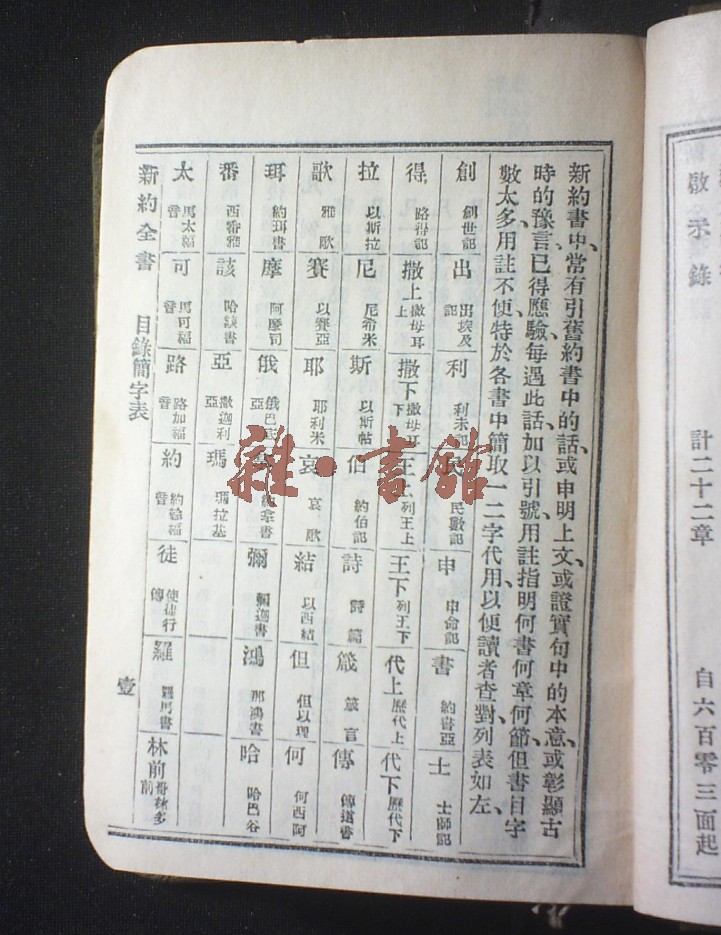 啟示錄 計二十二章 自六百零三面起
新約書中、常有引舊約書中的話、或申明上文、或證實句中的本意、或彰顯古
時的豫言、已得應驗、每遇此話、加以引號、用註指明何書何章何節、但書目字
數太多、用註不便、特於各書中簡取一二字代用、以便讀者查對、列表如左、
創 創世記 出 出埃及記 利 利未記 民 民數記 申 申命記 書 約書亞 士 士師記
得 路得記 撒上 撒母耳上 撒下 撒母耳下 王上 列王上 王下 列王下 代上 歷代上 代下 歷代下
拉 以斯拉 尼 尼希米 斯 以斯帖 伯 約伯記 詩 詩篇 箴 箴言 傳 傳道書
歌 雅歌 賽 以賽亞 耶 耶利米 哀 哀歌 結 以西結 但 但以理 何 何西阿
珥 約珥書 摩 阿摩司 俄 俄巴底亞 約拿書 彌 彌迦書 鴻 那鴻書 哈 哈巴谷
番 西番雅 該 哈該書 亞 撒迦利亞 瑪 瑪拉基
太 馬太福音 可 馬可福音 路 路加福音 約 約翰福音 徒 使徒行傳 羅 羅馬書 林前 哥林多前
新約全書 目錄簡字表 壹
雜·書館